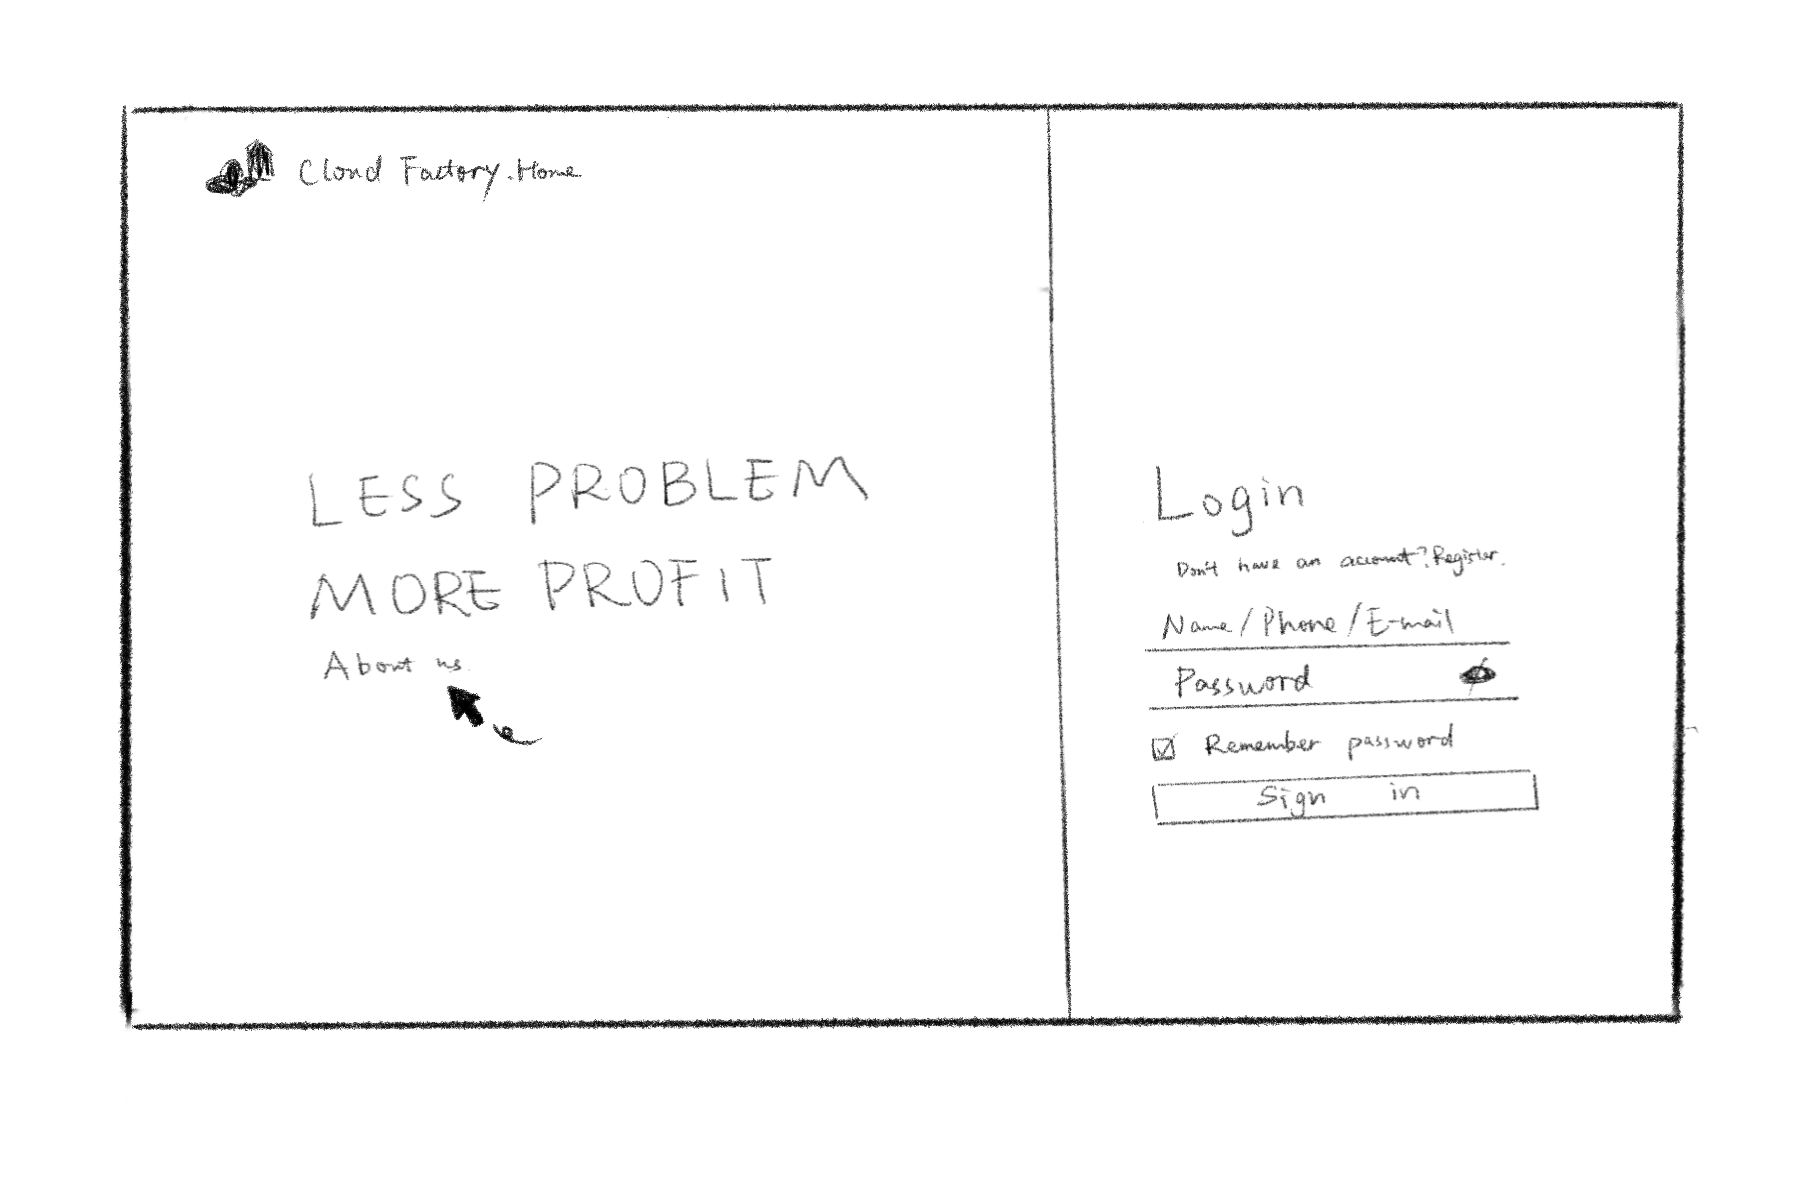 Cloud Factory.Home
LESS PROBLEM
MORE PROFIT
About us
Login
Don't have an account? Register.
Name/Phone/E-mail
Password
Remember password
Sign in